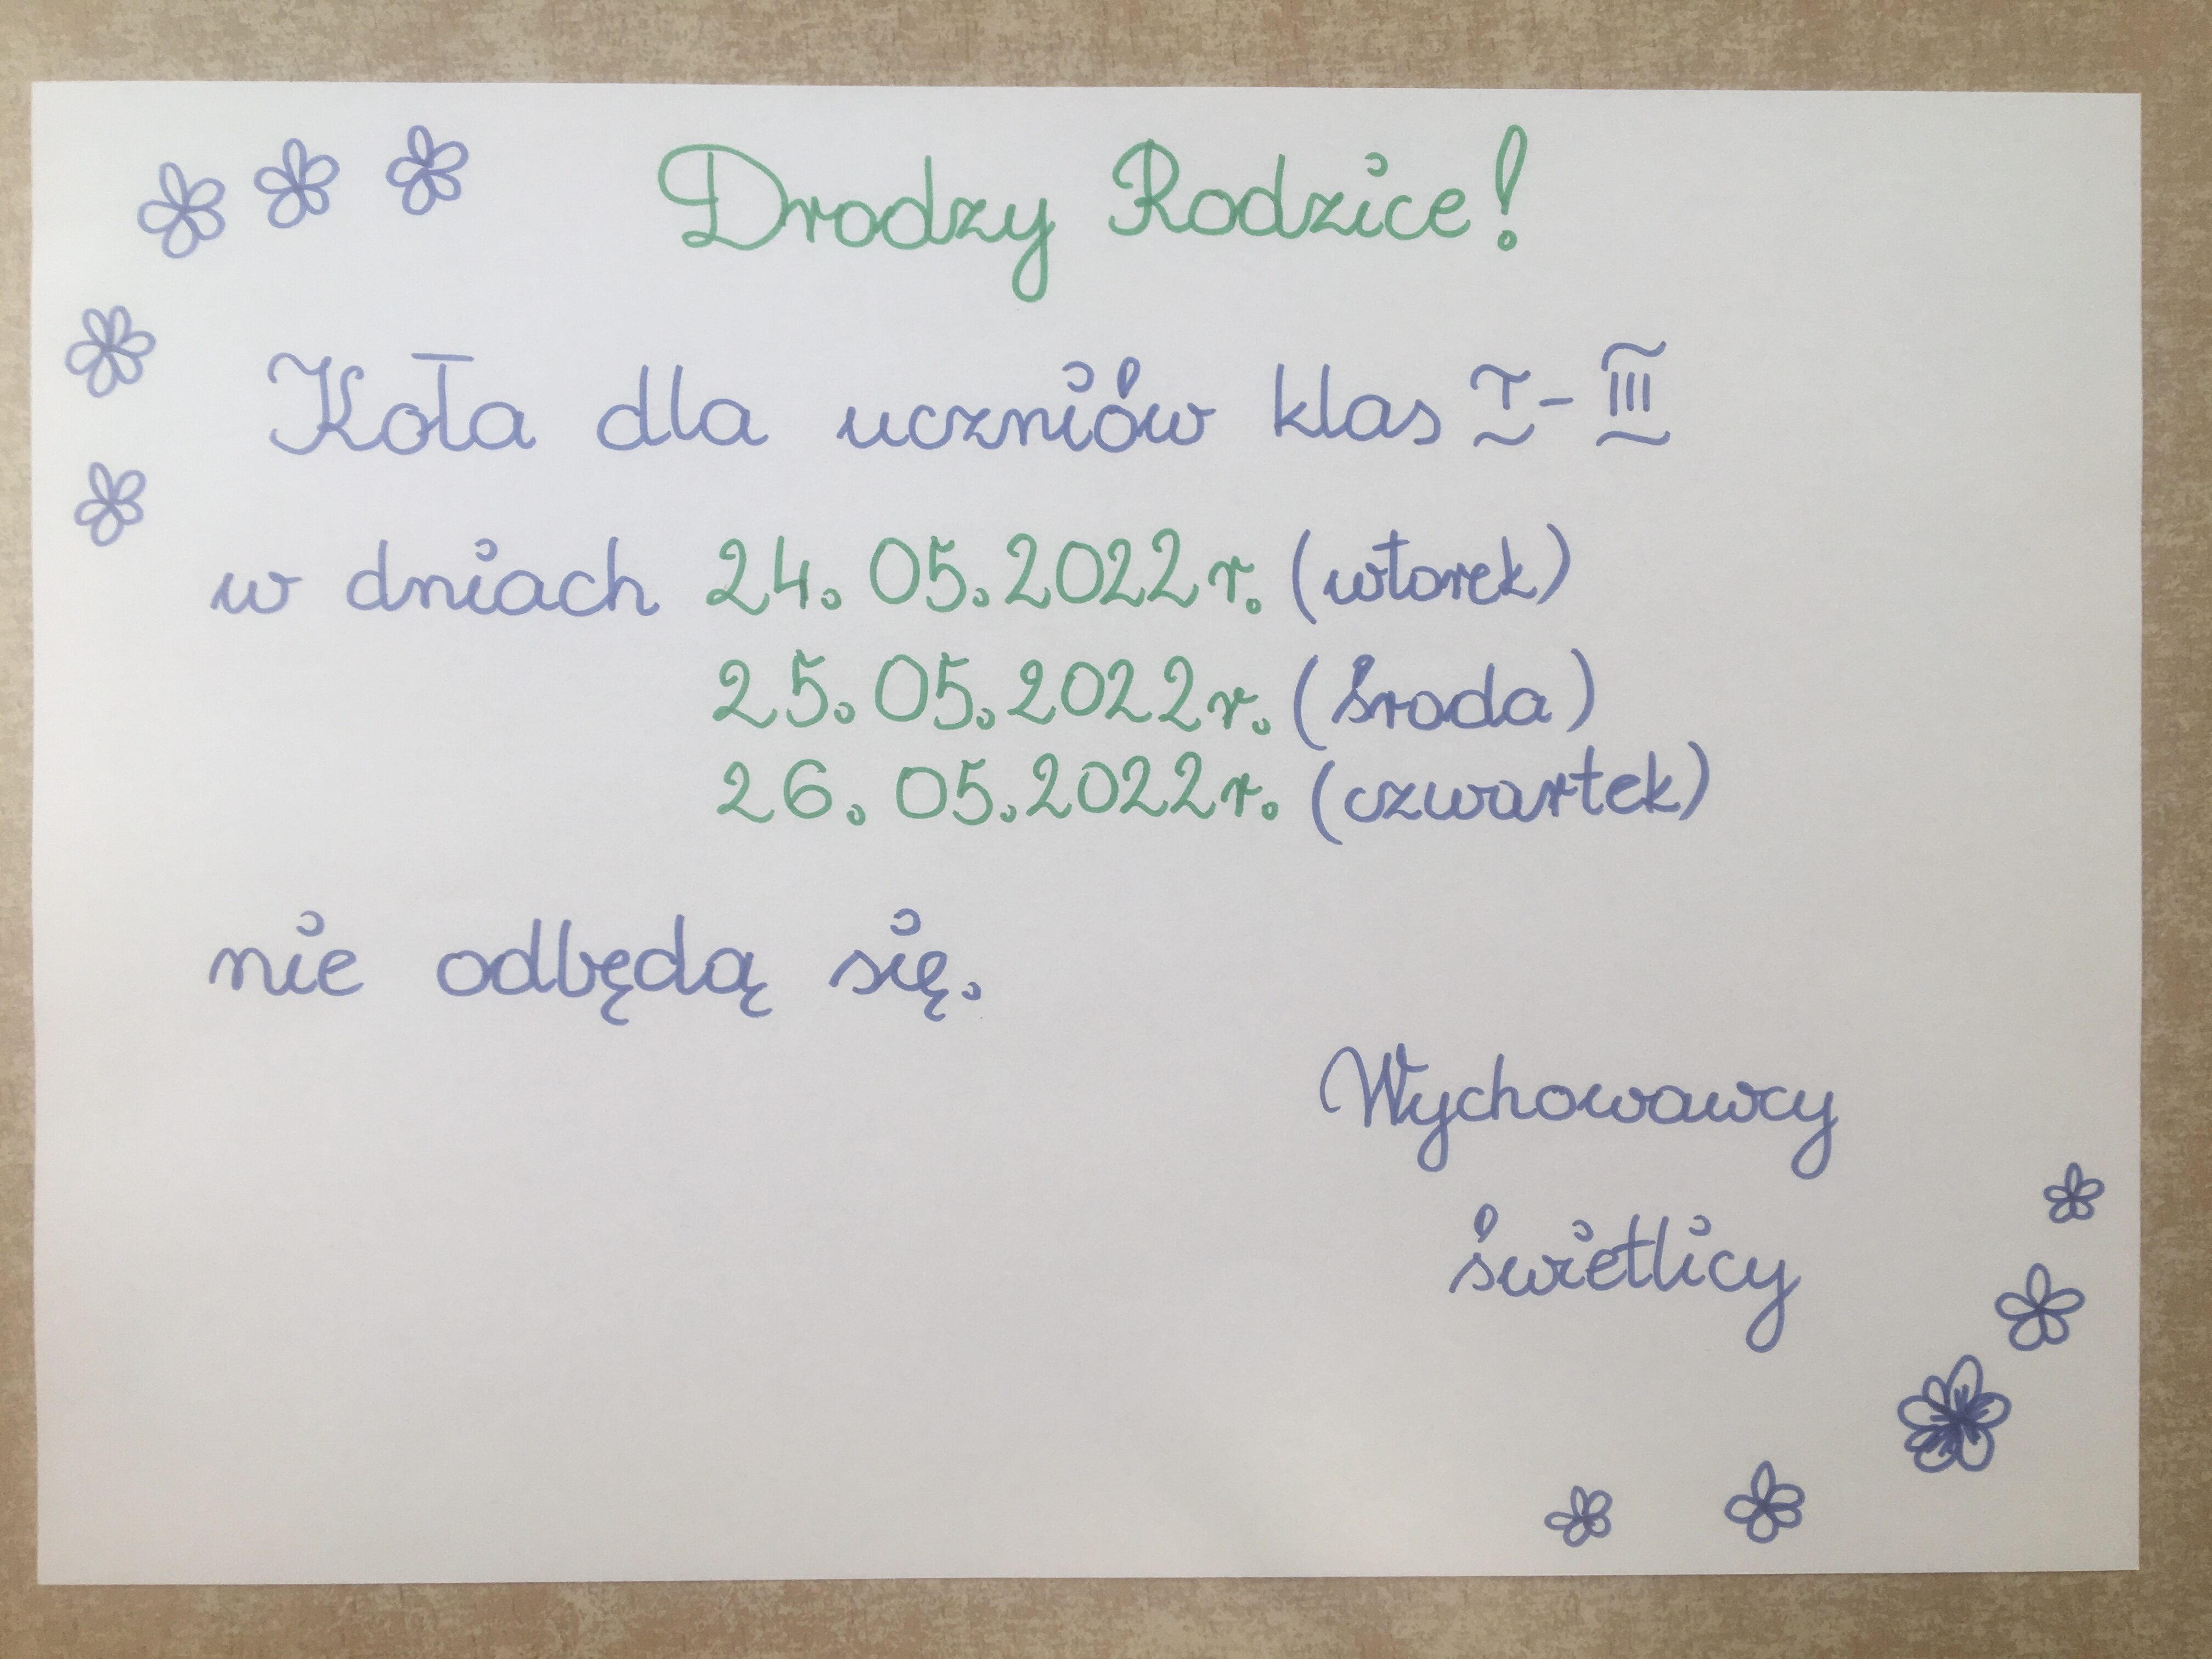 Drodzy Rodzice!
Koła dla uczniów klas I-III
w dniach 24.05.2022r. (wtorek)
25.05.2022r. (środa)
26.05.2022r. (czwartek)
nie odbędą się.
Wychowawcy
świetlicy